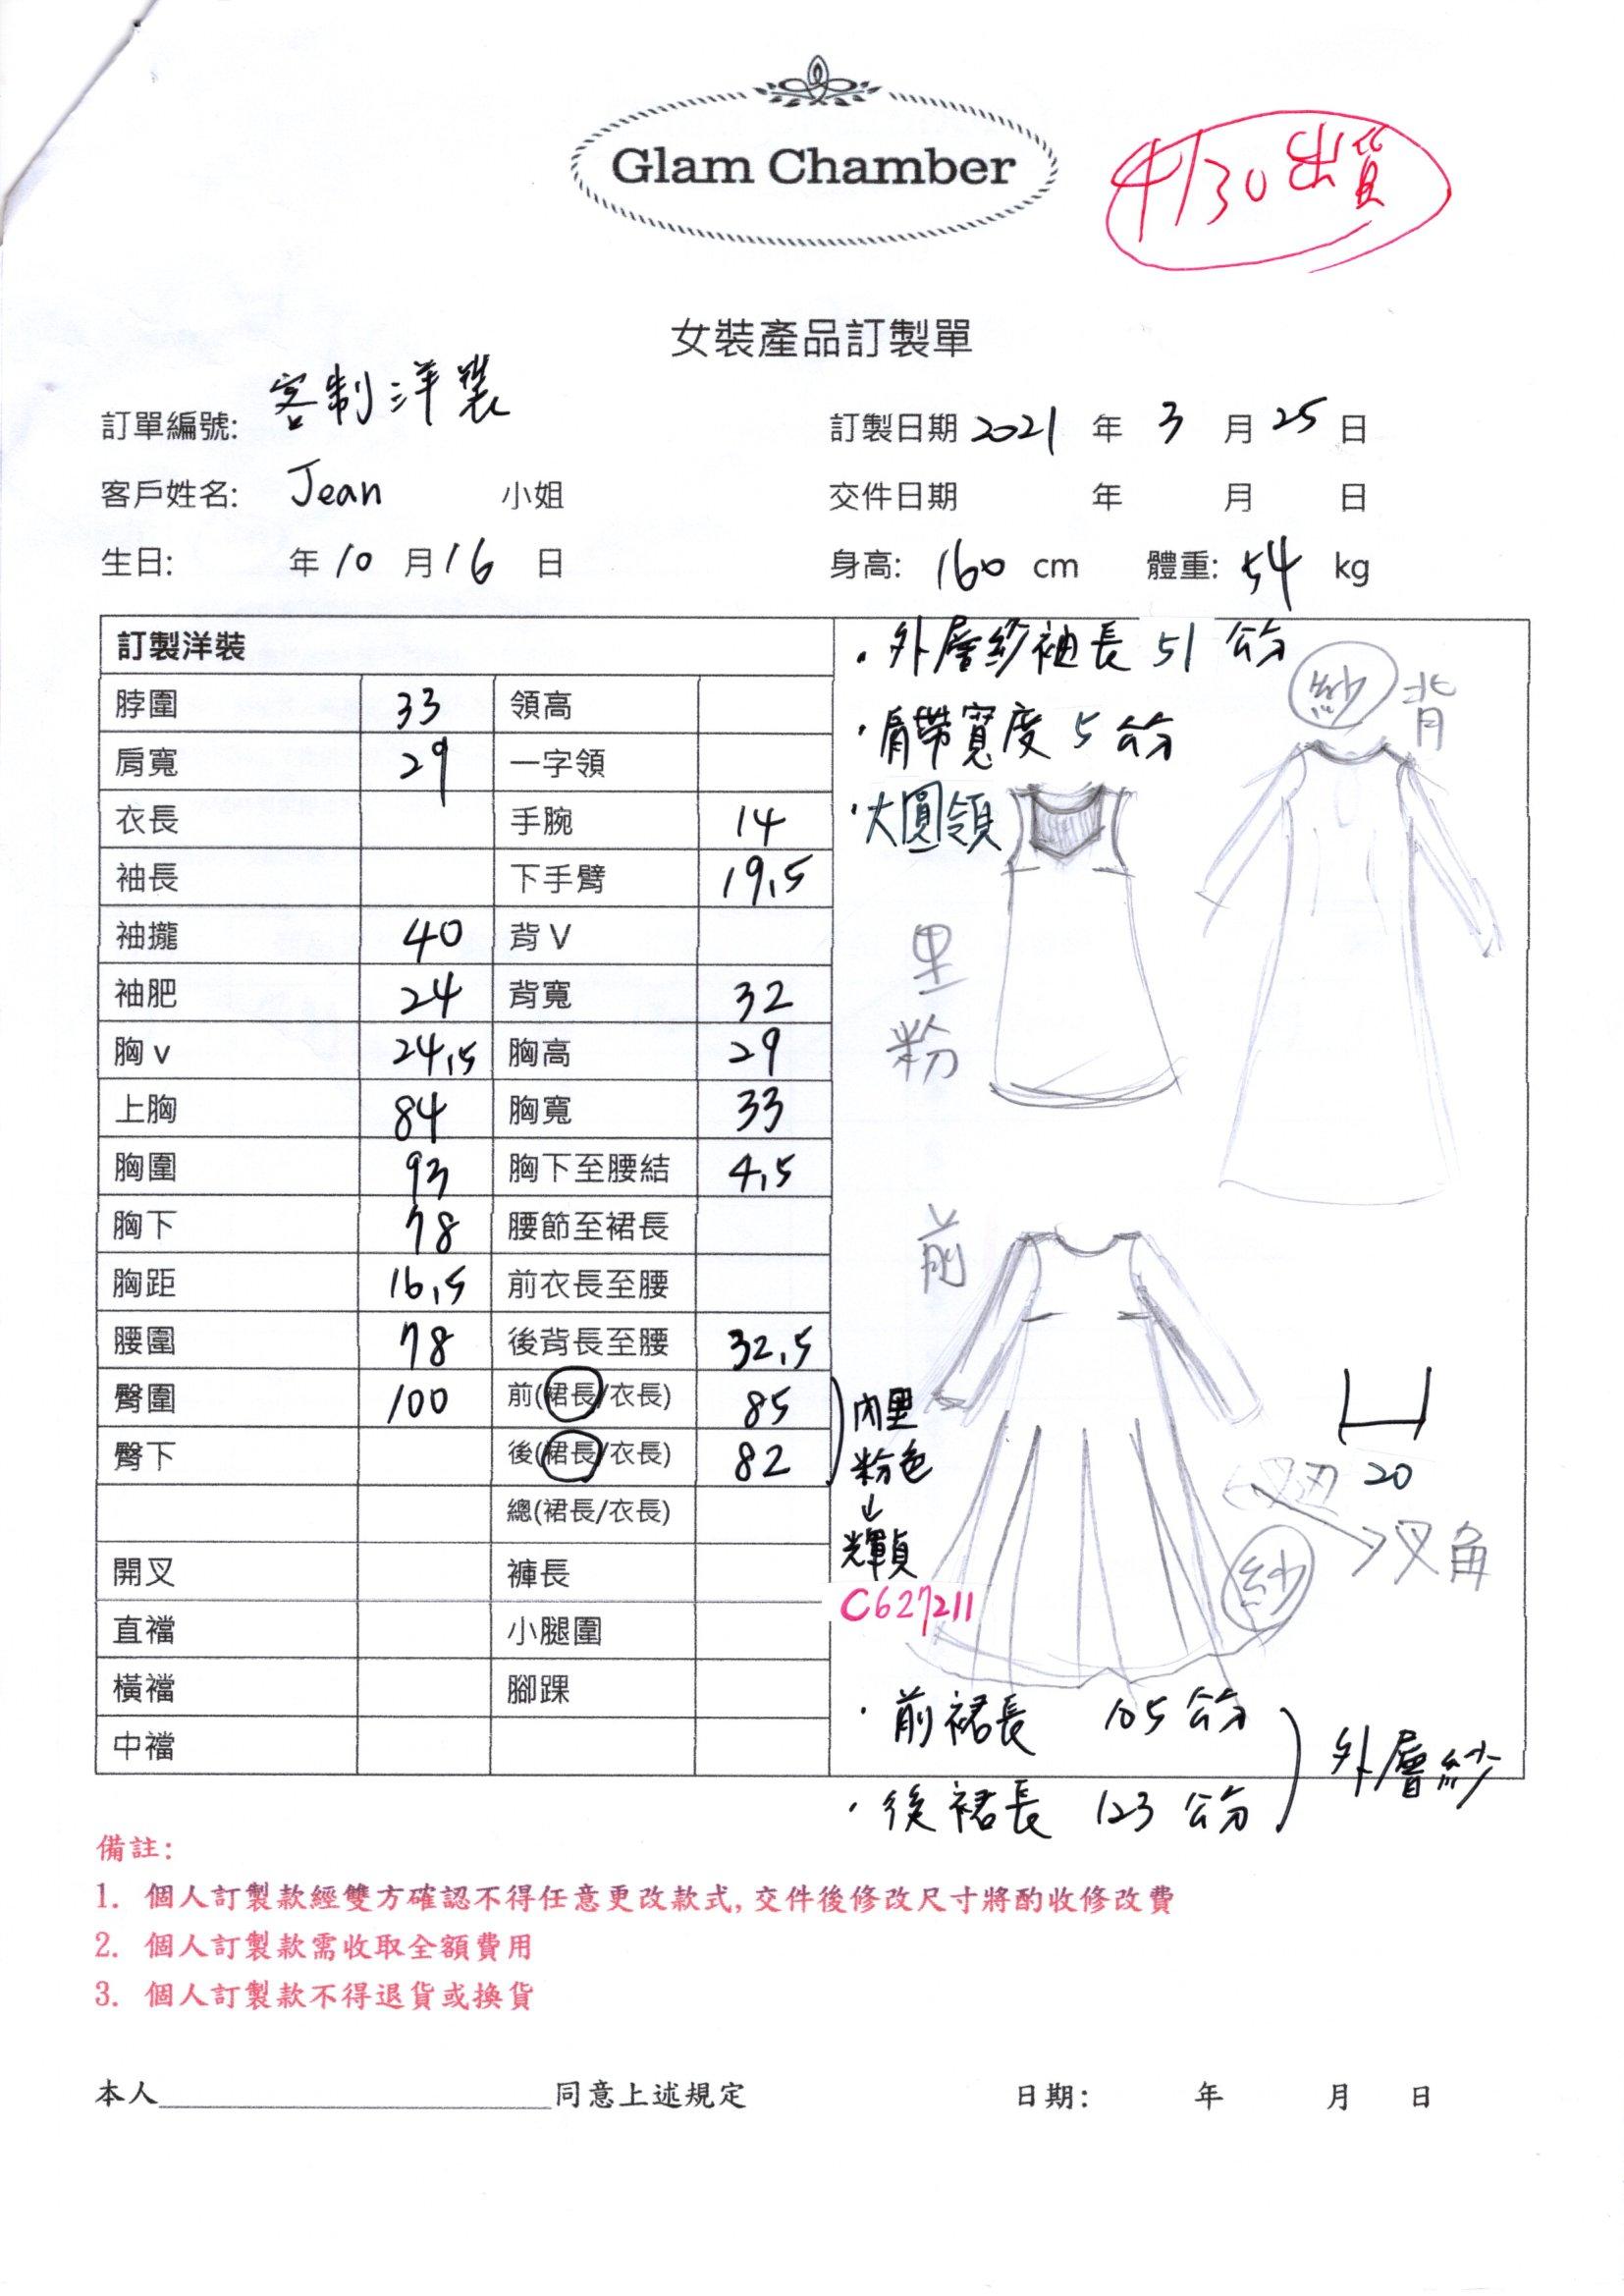 Glam Chamber
4/30出貨
女裝產品訂製單
訂單編號: 客制洋裝
訂製日期 2021 年 3 月 25 日
客戶姓名: Jean 小姐
交件日期 年 月 日
生日: 年 10 月 16 日
身高: 160 cm 體重: 54 kg
訂製洋裝
脖圍 33 領高
肩寬 29 一字領
衣長 手腕 14
袖長 下手臂 19.5
袖攏 40 背 V
袖肥 24 背寬 32
胸 v 24.5 胸高 29
上胸 84 胸寬 33
胸圍 93 胸下至腰結 4.5
胸下 78 腰節至裙長
胸距 16.5 前衣長至腰
腰圍 78 後背長至腰 32.5
臀圍 100 前(裙長/衣長) 85
臀下 後(裙長/衣長) 82
總(裙長/衣長)
開叉 褲長
直襠 小腿圍
橫襠 腳踝
中襠
·外層紗袖長 51 公分
·肩帶寬度 5 公分
·大圓領
紗
背
里
粉
前
內里
粉色
↓
輝貞
C627211
20
紗
叉角
·前裙長 105 公分
·後裙長 123 公分
外層紗
備註:
1. 個人訂製款經雙方確認不得任意更改款式, 交件後修改尺寸將酌收修改費
2. 個人訂製款需收取全額費用
3. 個人訂製款不得退貨或換貨
本人____________________同意上述規定
日期: 年 月 日